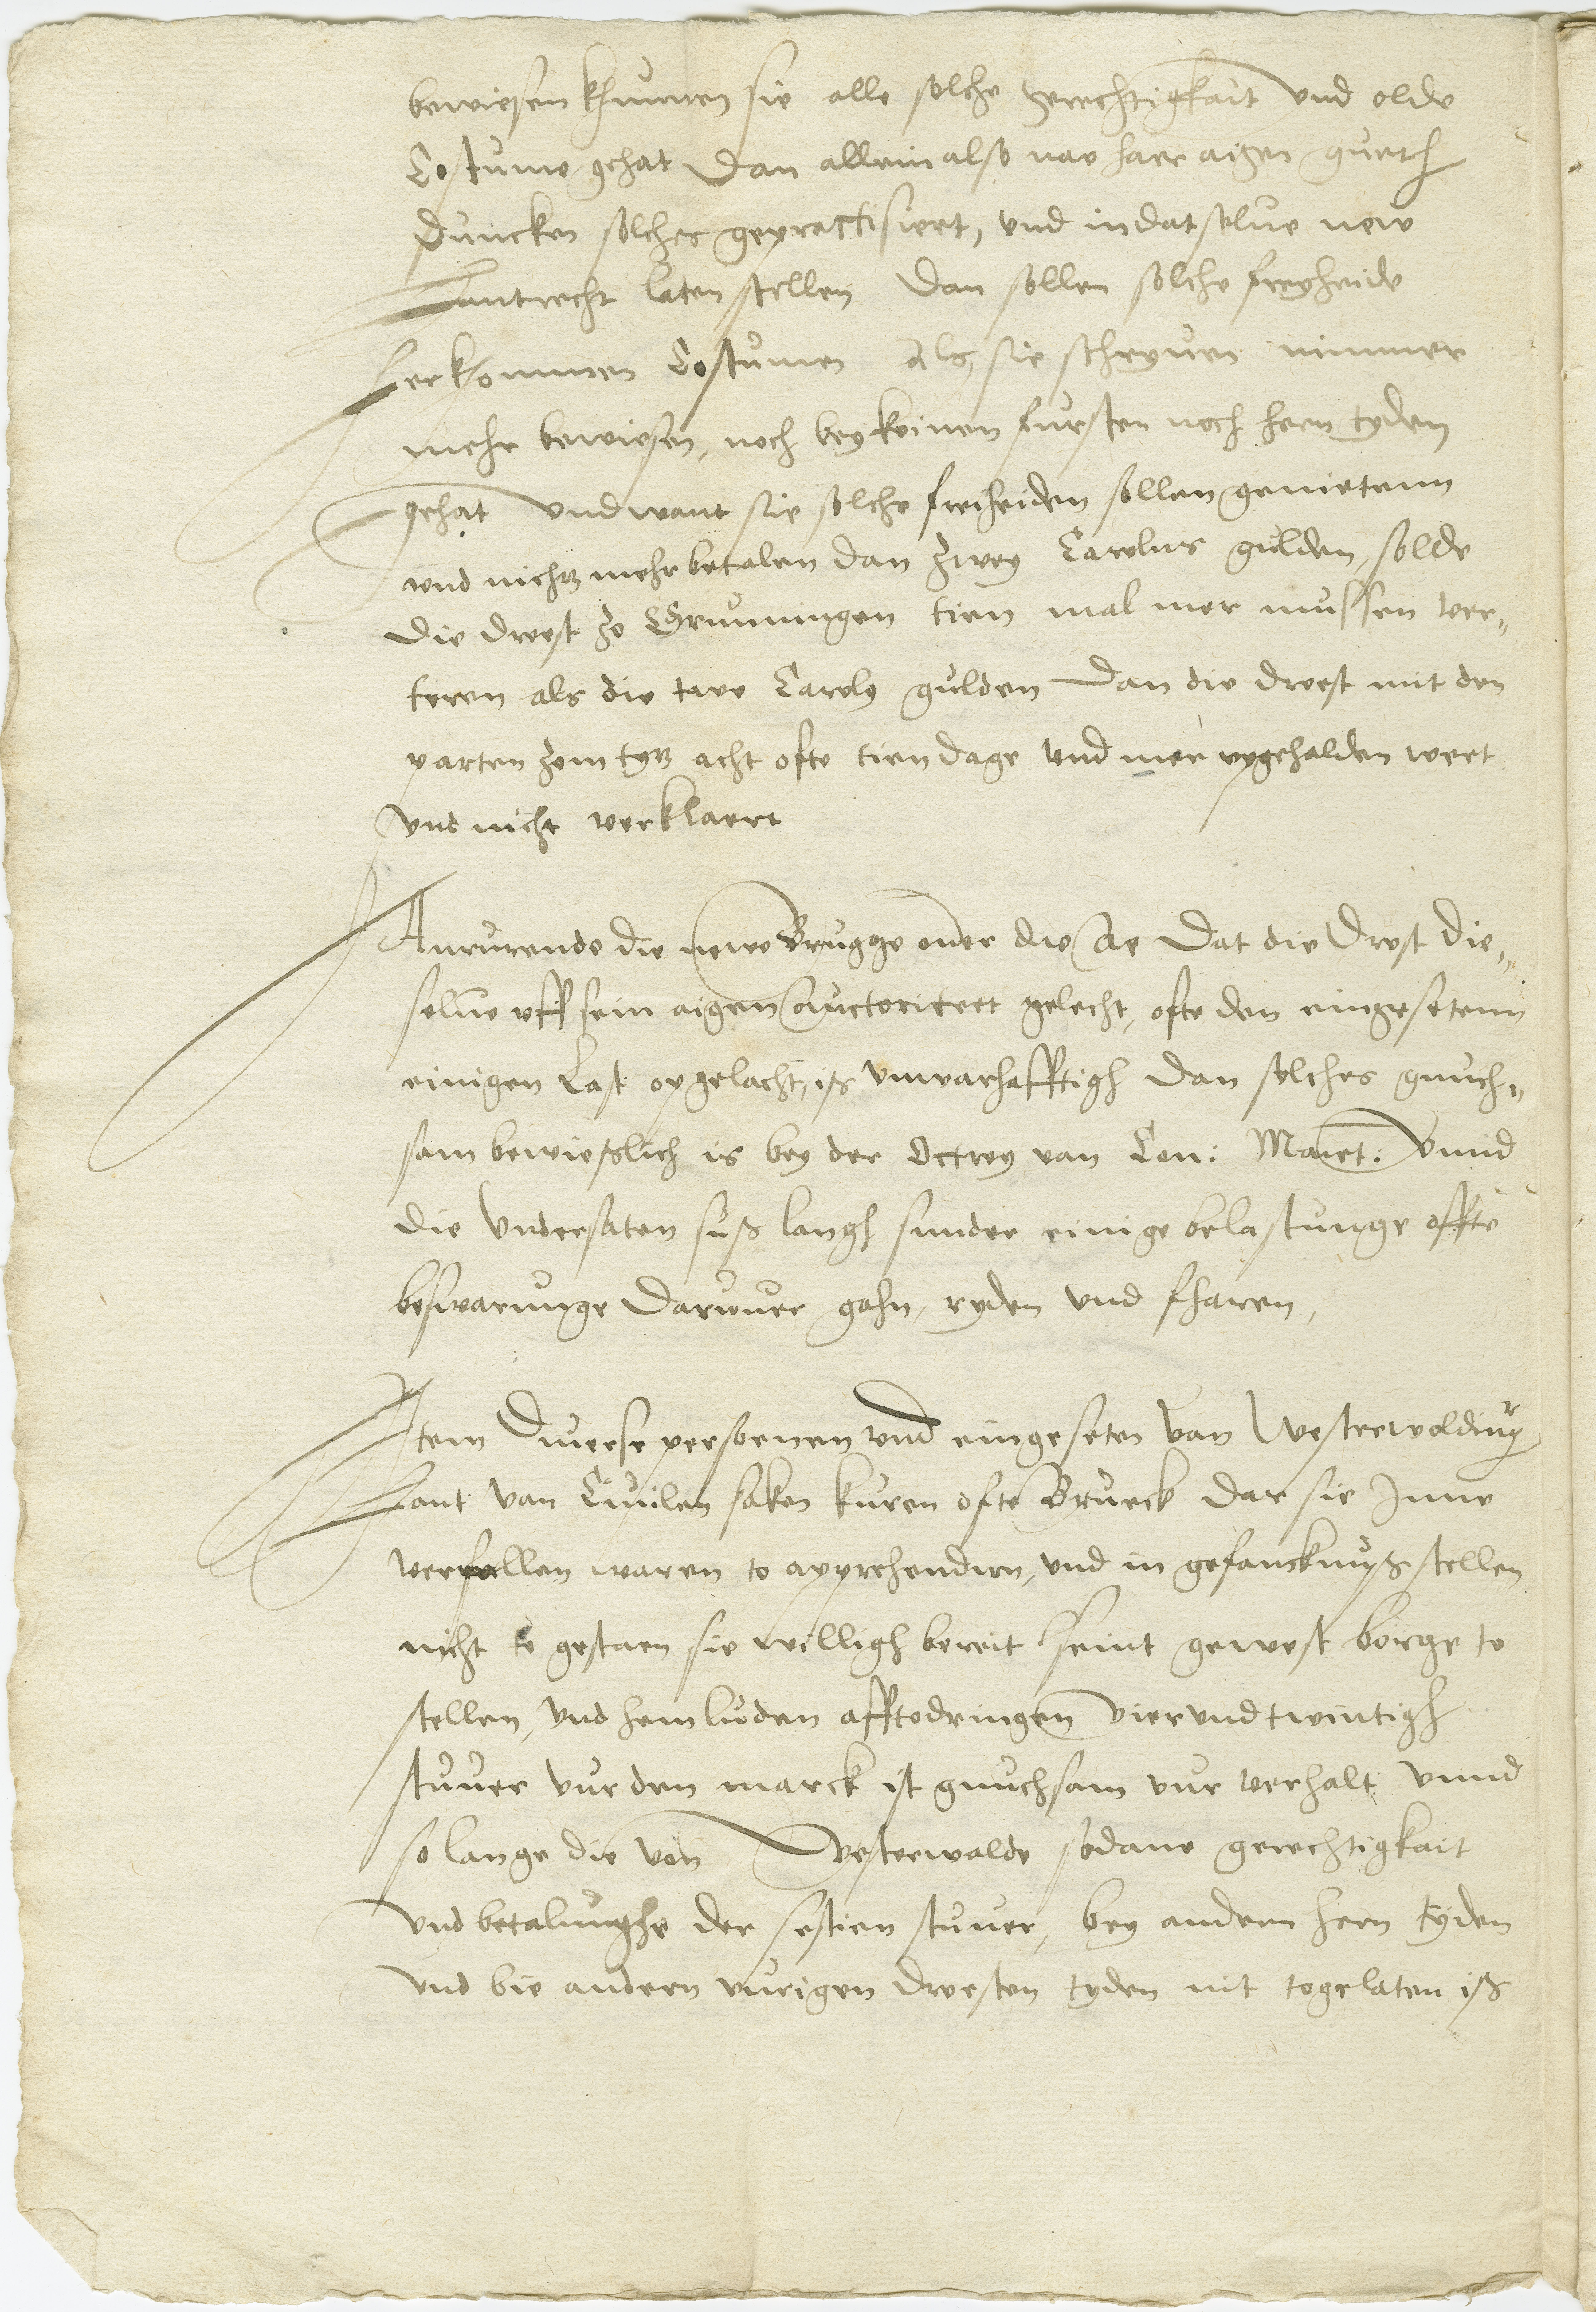 bewiesen khunnen sie alle solche gerechtigkait und olde
Costume gehat Dan allein also nae haer aigen gueth
Duncken solches gepractisiert, und in dat selue new
Lantrecht laten stellen Dan sollen solche freyheide
herkommen Costumen als sie schryuen nimmer
mehr bewiesen, noch bey keinen fursten noch hern tyden
gehat und want sie solche freiheiden sollen genietenn
und nichtz mehr betalen dan zwey Carolus gulden, solde
die droest zo Gruningen tien mal mer mussen ver„
teren als die twe Carolg gulden Dan die droest mit den
parten zom tytz acht ofte tien dage und mer upgehalden wert
und nicht verklaert
Anrurende die newe Brugge ouer die Ae Dat die Drost die„
selue uff sein aigen auctoriteet gelecht, ofte den eingesetenn
einigen Last opgelacht, iß unwarhafftigh Dan solches gnuch„
sam bewießlich is bey der Octroy van Con: Maiet: Unnd
die Undersaten suß langh sunder einige belastunge offte
beswarunge daruuer gahn, ryden und fharen,
Item Diuerse persoenen und eingeseten van Westerwoldingr
Lant van Ciuilen saken kuren ofte Brueck dar sie Inne
verfallen waren to apprehendirn, und in gefancknuß stellen
nicht to gestaen sie willigh bereit seint gewest borge to
stellen, und hem luden aff to dringen vier und twintigh
stuuer vur den marck ist gnuchsam vur verhalt unnd
so lange die von Westerwolde sodane gerechtigkait
und betalunghe der sestien stuuer, bey andern hern tyden
und bie andern vurigen droesten tyden nit togelaten iß